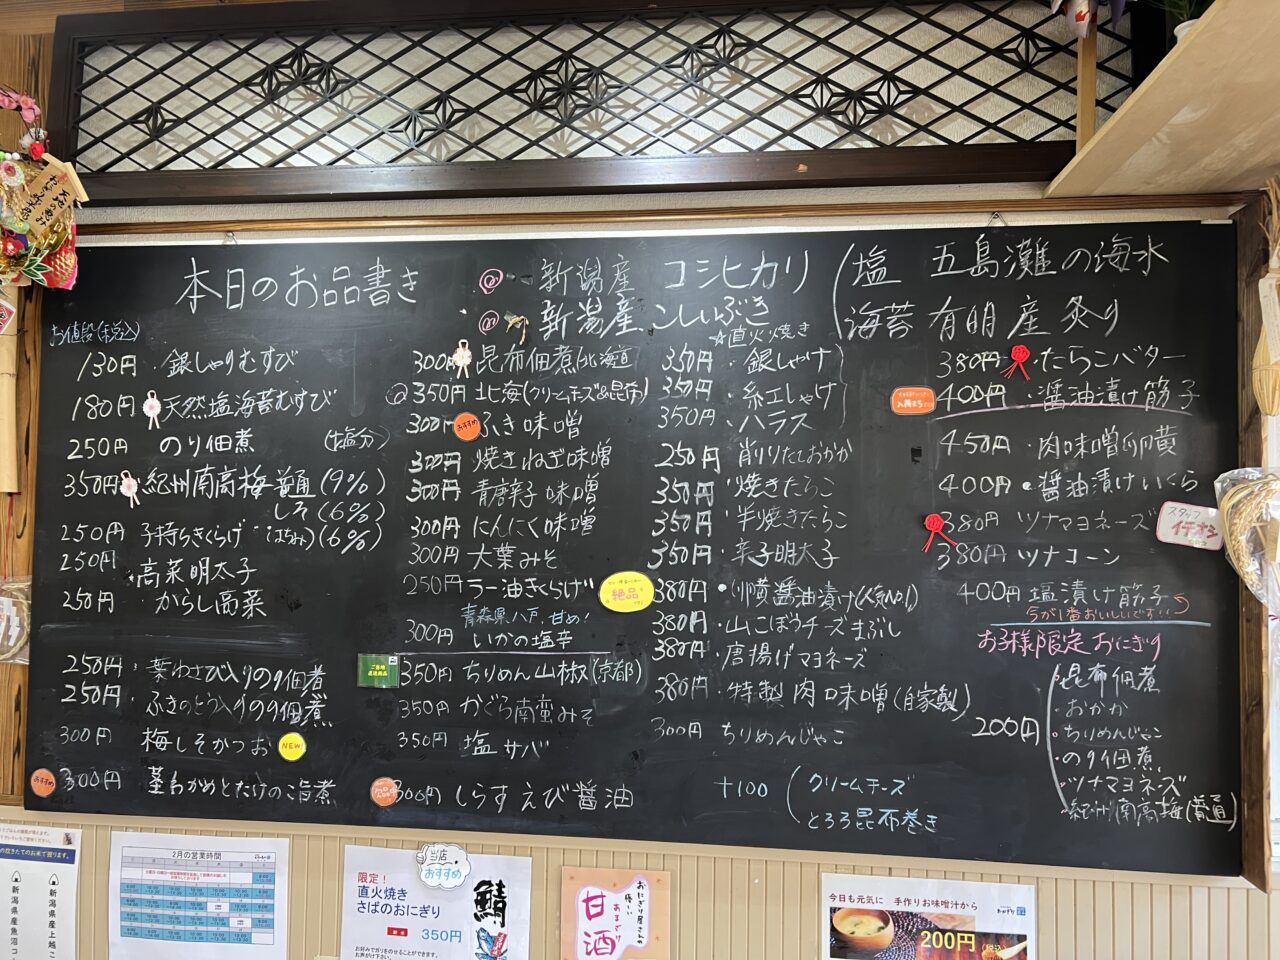 本日のお品書き
新潟産 コシヒカリ
新潟産 こしいぶき
塩 五島灘の海水
海苔 有明産炙り
お値段(税込)
130円・銀しゃりむすび
180円 天然塩海苔むすび
250円 のり佃煮 (塩分)
350円 紀州南高梅 普通(9%)
しそ(6%)
はちみつ(6%)
250円 子持ちきくらげ
250円 ・高菜明太子
250円・からし高菜
250円・葉わさび入りのり佃煮
250円・ふきのとう入りのり佃煮
300円 梅しそかつお NEW!
おすすめ 300円 茎わかめとたけのこ旨煮
300円 昆布佃煮(北海道)
350円 北海(クリームチーズ&昆布)
300円 おすすめ ふき味噌
300円 焼きねぎ味噌
300円 青唐辛子味噌
300円 にんにく味噌
300円 大葉みそ
250円 ラー油きくらげ
青森県八戸、甘め!
300円 いかの塩辛
350円 ちりめん山椒(京都)
350円 かぐら南蛮みそ
350円 塩サバ
300円 しらすえび醤油
☆直火焼き
350円・銀しゃけ
350円・紅しゃけ
350円・ハラス
250円・削りたておかか
350円・焼きたらこ
350円・半焼きたらこ
350円・辛子明太子
絶品
380円・卵黄醤油漬け(人気No.1)
380円・山ごぼうチーズまぶし
380円・唐揚げマヨネーズ
380円・特製肉味噌(自家製)
300円 ちりめんじゃこ
+100
クリームチーズ
とろろ昆布巻き
380円・たらこバター
400円・醤油漬け筋子
450円・肉味噌卵黄
400円・醤油漬けいくら
380円 ツナマヨネーズ
スタッフ イチオシ
380円 ツナコーン
400円 塩漬け筋子
今が1番おいしいです
お子様限定おにぎり
200円
・昆布佃煮
・おかか
・ちりめんじゃこ
・のり佃煮
・ツナマヨネーズ
・紀州南高梅(普通)
2月の営業時間
当店おすすめ
限定!
直火焼き
さばのおにぎり
350円
鯖
おにぎり屋さんの
優しい
あまざけ
甘酒
今日も元気に 手作りお味噌汁から
200円(税込)